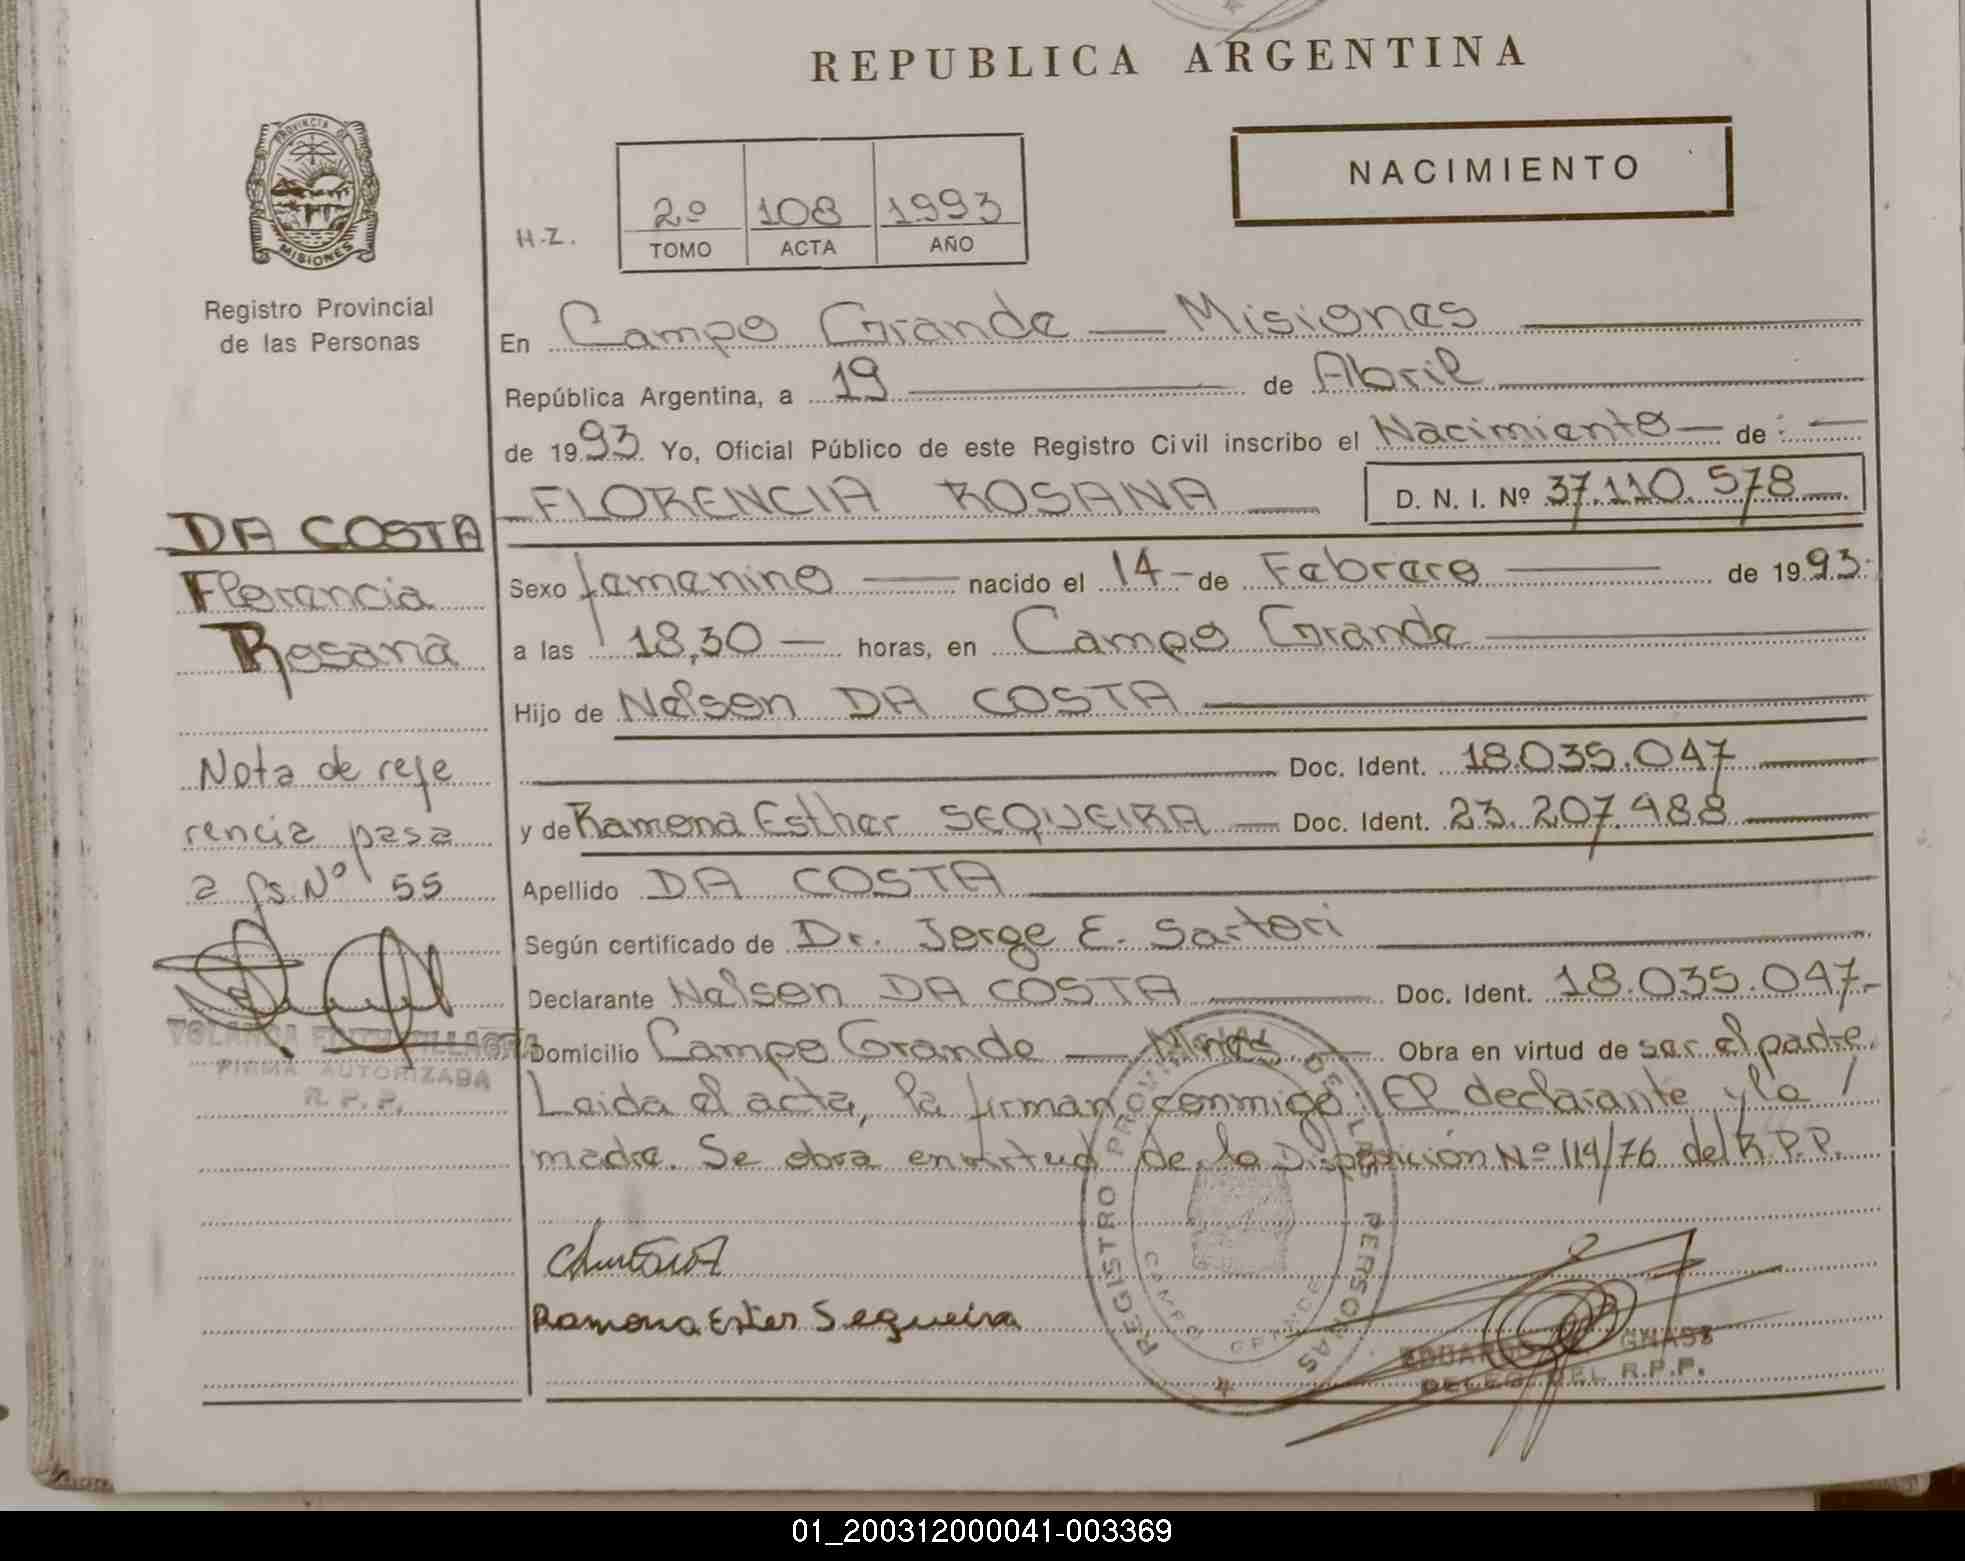 REPUBLICA ARGENTINA
PROVINCIA DE
MISIONES
Registro Provincial
de las Personas
H.Z.
2º 108 1993
TOMO ACTA AÑO
NACIMIENTO
En Campo Grande — Misiones
República Argentina, a 19 de Abril
de 1993. Yo, Oficial Público de este Registro Civil inscribo el Nacimiento — de : —
FLORENCIA ROSANA D. N. I. Nº 37.110.578
DA COSTA
Florencia
Rosana
Sexo femenino — nacido el 14 - de Febrero — de 1993.
a las 18,30 — horas, en Campo Grande
Hijo de Nelson DA COSTA
Doc. Ident. 18.035.047
y de Ramona Esther SEQUEIRA — Doc. Ident. 23.207.488
Apellido DA COSTA
Según certificado de Dr. Jorge E. Sartori
Declarante Nelson DA COSTA Doc. Ident. 18.035.047.-
Domicilio Campo Grande — Mnes. — Obra en virtud de ser el padre.
Leida el acta, la firman conmigo: El declarante y la /
madre. Se obra en virtud de la Disposición Nº 114/76 del R.P.P.
Nota de refe
rencia pasa
a fs. Nº 55
FIRMA AUTORIZADA
R.P.P.
Ramona Ester Sequeira
REGISTRO PROVINCIAL DE LAS PERSONAS
CAMPO GRANDE
EDUARDO GNASS
DELEG. DEL R.P.P.
01_200312000041-003369